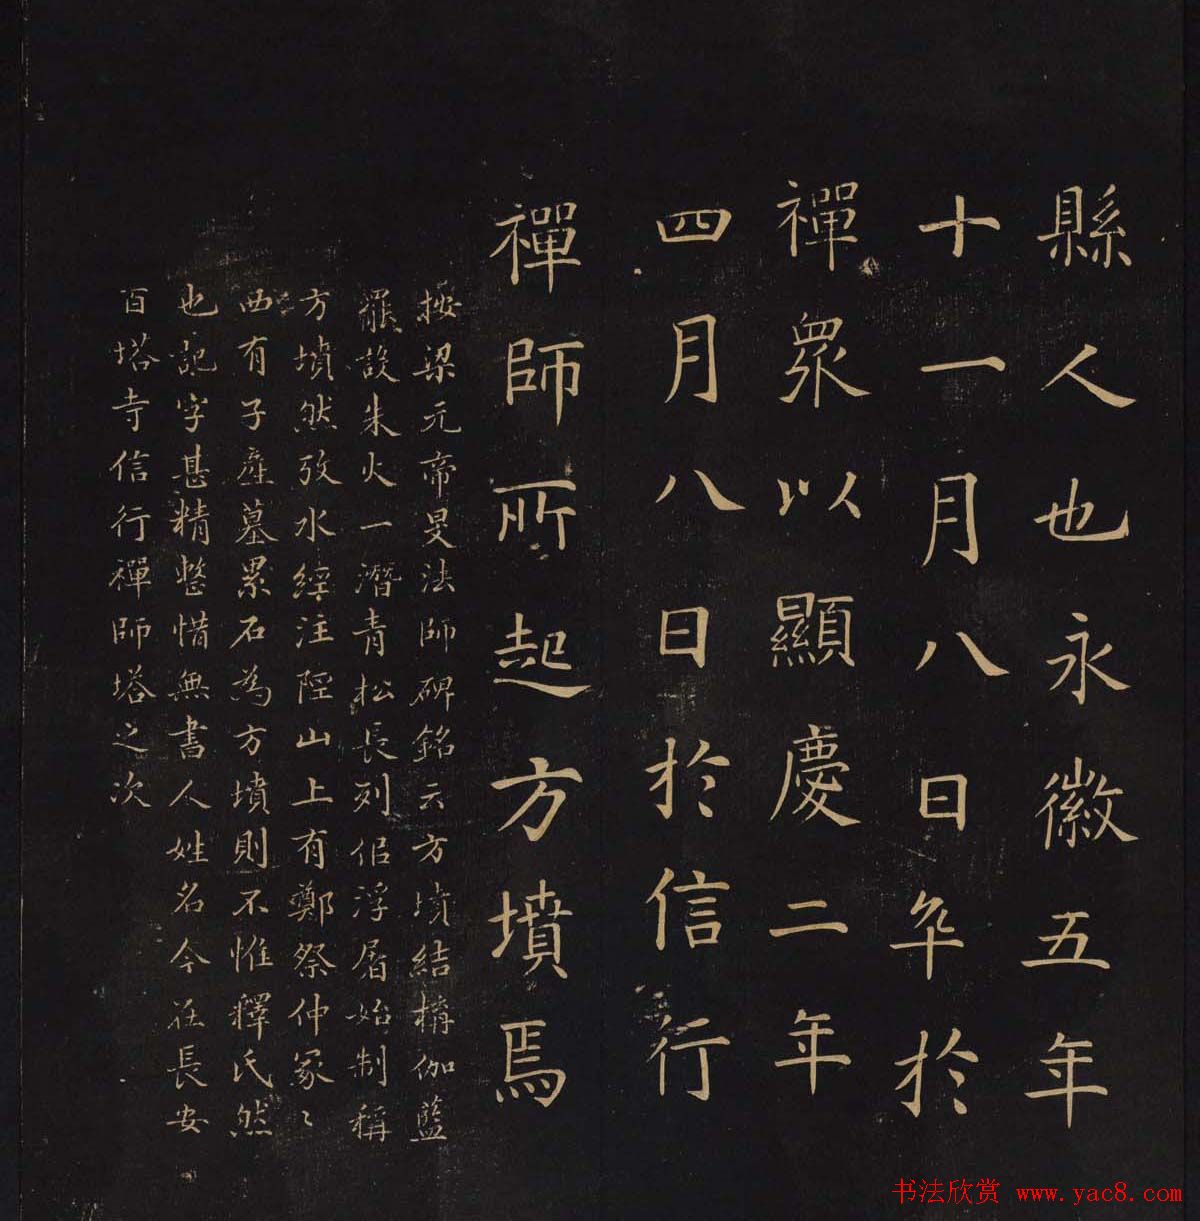 縣人也永徽五年
十一月八日卒於
禪眾以顯慶二年
四月八日於信行
禪師所起方墳焉
按梁元帝旻法師碑銘云方墳結構伽藍
羅設朱火一潛青松長列佀浮屠始制稱
方墳然攷水經注陘山上有鄭祭仲冢〻
西有子產墓累石為方墳則不惟釋氏然
也記字甚精整惜無書人姓名今在長安
百塔寺信行禪師塔之次
书法欣赏 www.yac8.com